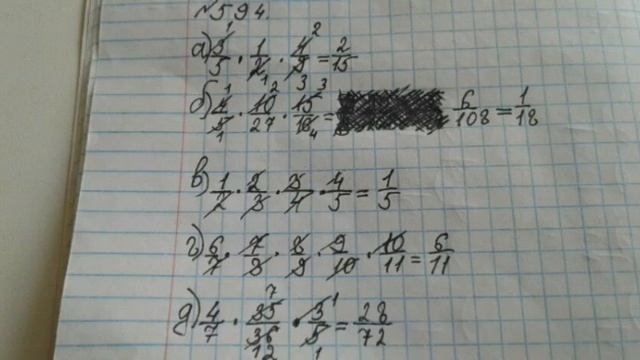 №594.
а) 3/5 · 1/2 · 4/9 = 2/15
б) 4/5 · 10/27 · 15/16 = 6/108 = 1/18
в) 1/2 · 2/3 · 3/4 · 4/5 = 1/5
г) 6/7 · 7/8 · 8/9 · 9/10 · 10/11 = 6/11
д) 4/7 · 35/36 · 3/5 = 28/72